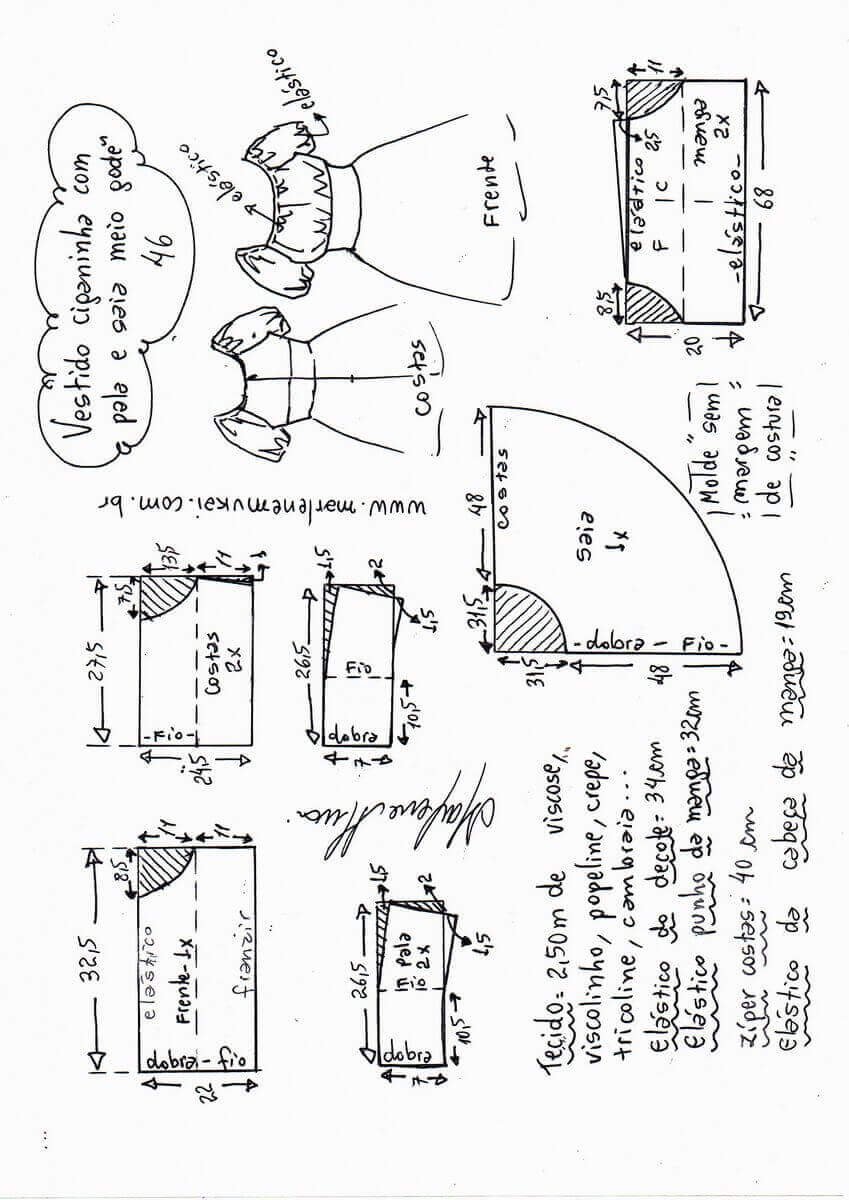 Vestido ciganinha com
pala e saia meio godê"
46
elástico
elástico
Costas
Frente
www.marlenemukai.com.br
32,5
8,5
11
11
elástico
Frente-1x
franzir
dobra-fio
22
27,5
7,5
13,5
11
1
-Fio-
Costas
2x
24,5
7,5
8,5
11
2,5
elástico
F | C
manga
2x
-elástico-
20
68
26,5
1,5
2
1,5
pala
Fio 2x
dobra
7
10,5
26,5
1,5
2
1,5
Fio
dobra
7
10,5
31,5
48
costas
saia
1x
-dobra-Fio-
31,5
48
Molde "sem
= margem =
de costura
Tecido= 2,50m de viscose,
viscolinho, popeline, crepe,
tricoline, cambraia...
Elástico do decote= 34cm
Elástico punho da manga=32cm
zíper costas= 40 cm
Elástico da cabeça da manga=19cm